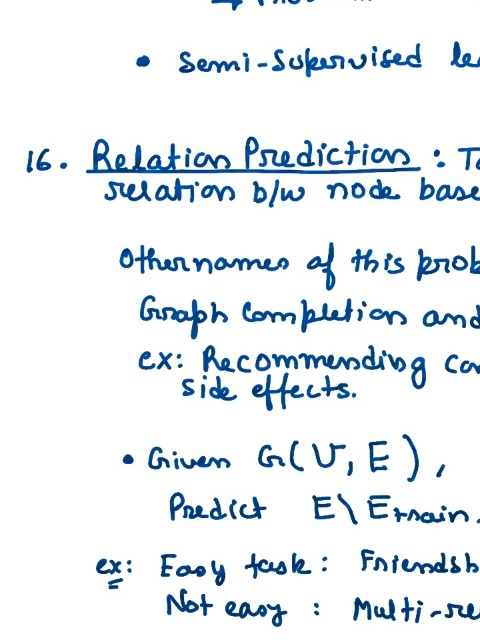 • Semi-Supervised
16. Relation Prediction :
relation b/w node
Other names of this
Graph Completion and
ex: Recommending
side effects.
• Given G(V, E),
Predict E\Etrain.
ex: Easy task :
Not easy :